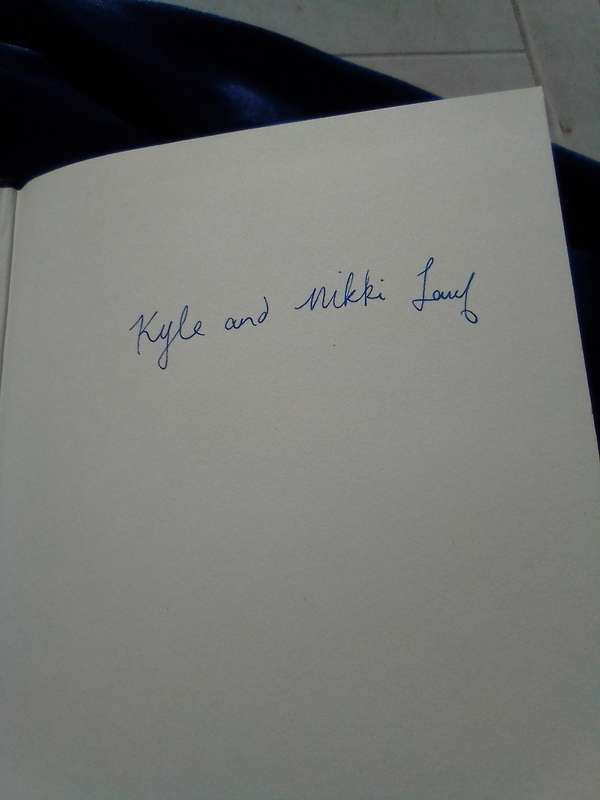 Kyle and Nikki Lauf